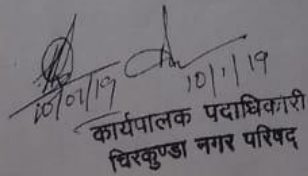 10/01/19 10/1/19
कार्यपालक पदाधिकारी
चिरकुण्डा नगर परिषद्